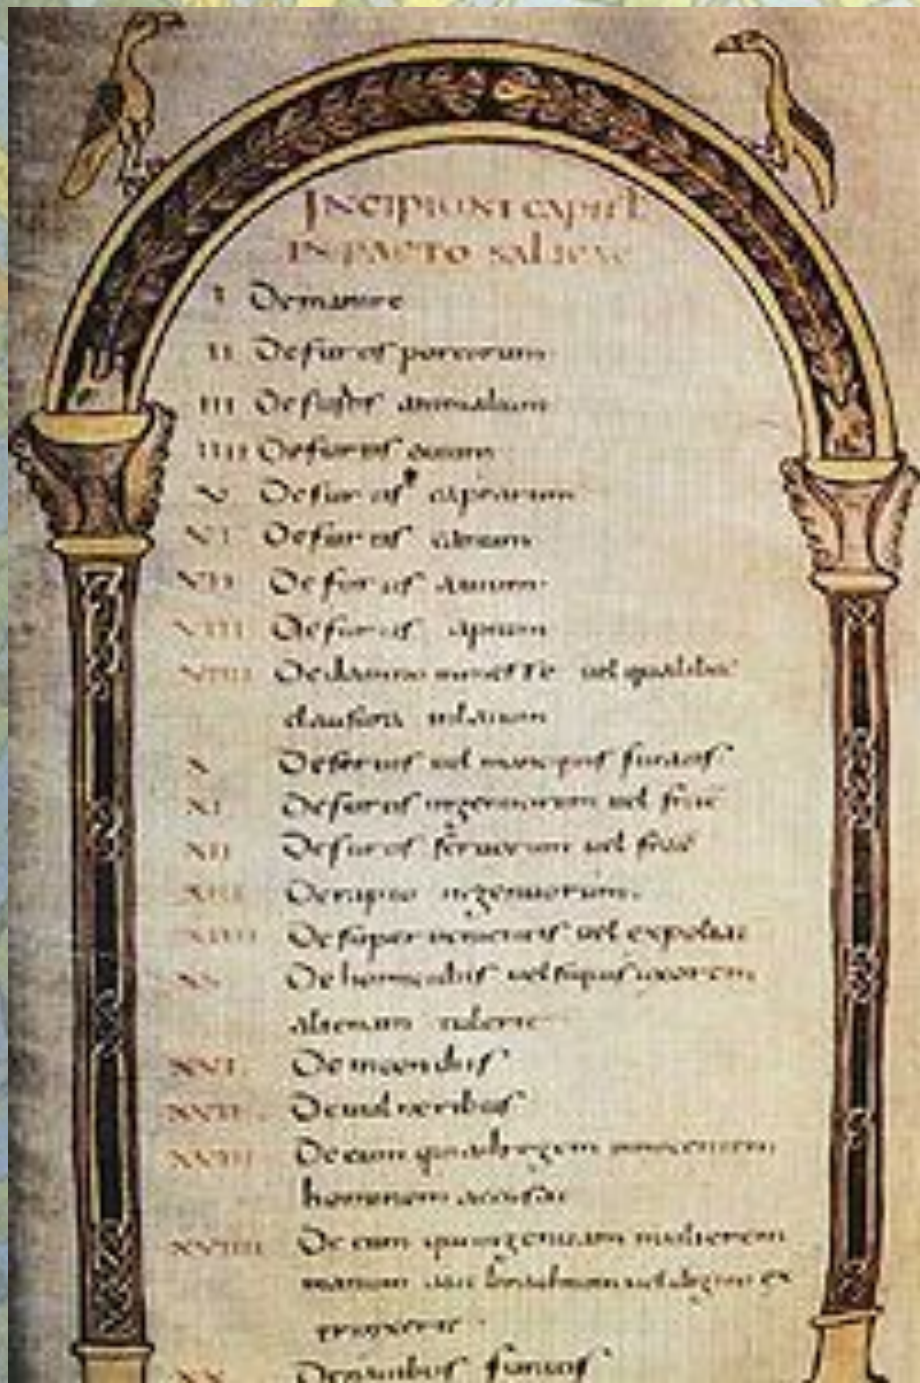 INCIPIUNT CAPITL
IN PACTO SALICAE
I De mannire
II De furtis porcorum
III De furtis animalium
IIII De furtis ovium
V De furtis caprarum
VI De furtis canum
VII De furtis avium
VIII De furtis apium
VIIII De damno in messe vel qualibet
clausura
X De servis vel mancipiis furatis
XI De furtis ingenuorum vel
XII De furtis servorum vel
XIII De rapto ingenuorum
XIIII De superventis vel expoliat
XV De homicidiis vel si quis uxorem
alienam tulerit
XVI De incendiis
XVII De vulneribus
XVIII De eum qui ad regem innocentem
hominem accusat
XVIIII De eum qui ingenuam mulierem
manum aut brachium vel digitum ex
trinxerit
XX De navibus furatis